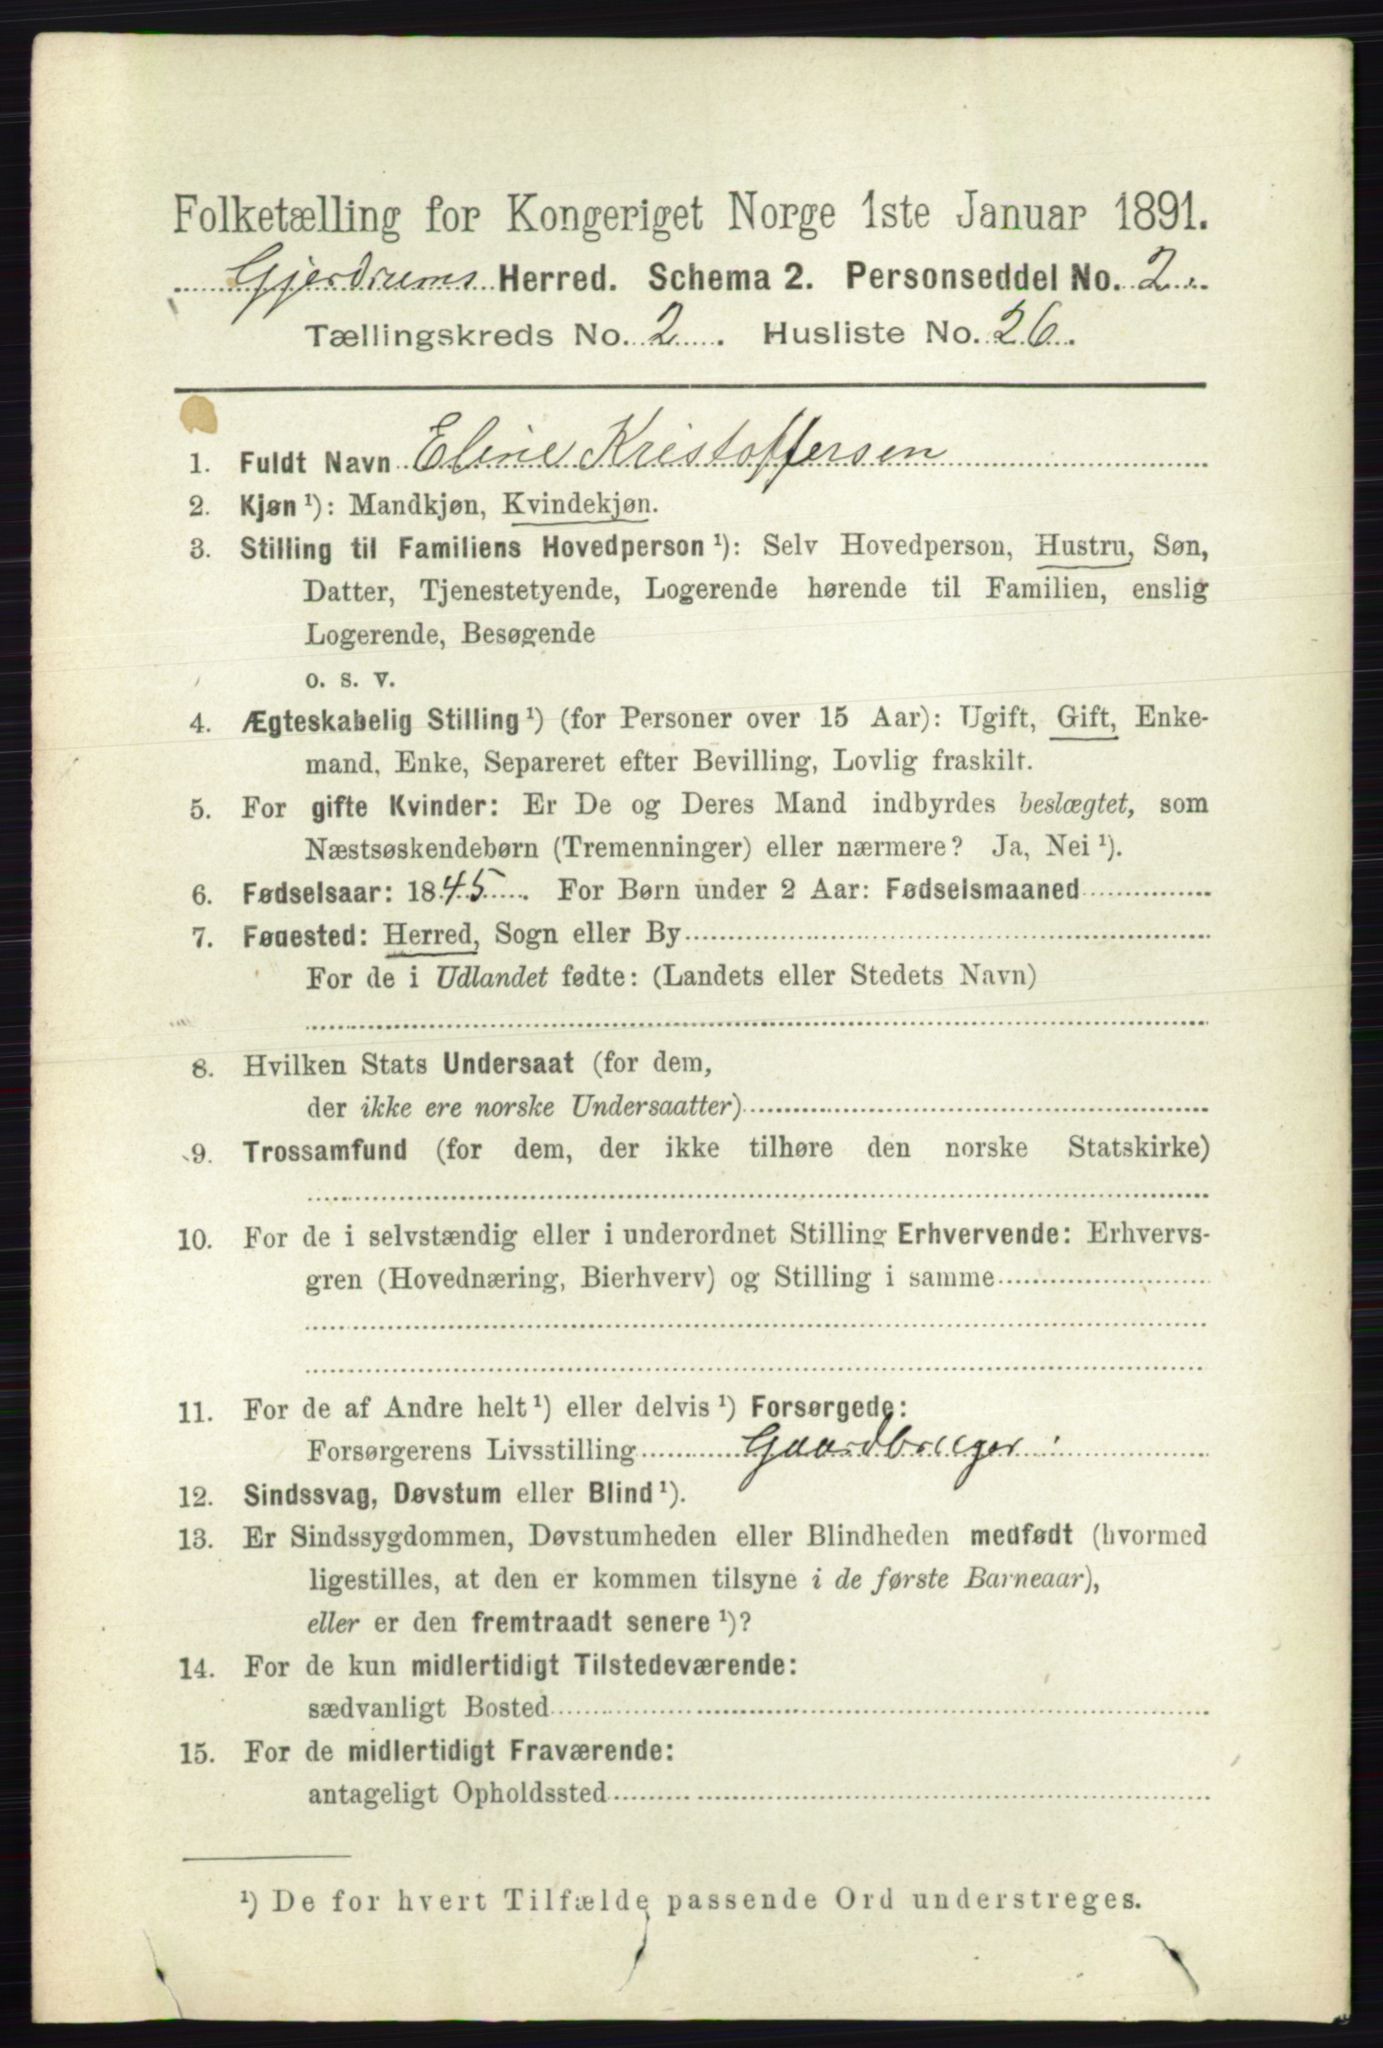 Folketælling for Kongeriget Norge 1ste Januar 1891.
Gjerdrums Herred. Schema 2. Personseddel No. 2.
Tællingskreds No. 2. Husliste No. 26.
1. Fuldt Navn Eline Kristoffersen
2. Kjøn ¹): Mandkjøn, Kvindekjøn.
3. Stilling til Familiens Hovedperson ¹): Selv Hovedperson, Hustru, Søn,
Datter, Tjenestetyende, Logerende hørende til Familien, enslig
Logerende, Besøgende
o. s. v.
4. Ægteskabelig Stilling ¹) (for Personer over 15 Aar): Ugift, Gift, Enke-
mand, Enke, Separeret efter Bevilling, Lovlig fraskilt.
5. For gifte Kvinder: Er De og Deres Mand indbyrdes beslægtet, som
Næstsøskendebørn (Tremenninger) eller nærmere? Ja, Nei ¹).
6. Fødselsaar: 1845. For Børn under 2 Aar: Fødselsmaaned
7. Fødested: Herred, Sogn eller By
For de i Udlandet fødte: (Landets eller Stedets Navn)
8. Hvilken Stats Undersaat (for dem,
der ikke ere norske Undersaatter)
9. Trossamfund (for dem, der ikke tilhøre den norske Statskirke)
10. For de i selvstændig eller i underordnet Stilling Erhvervende: Erhvervs-
gren (Hovednæring, Bierhverv) og Stilling i samme
11. For de af Andre helt ¹) eller delvis ¹) Forsørgede:
Forsørgerens Livsstilling Gaardbruger
12. Sindssvag, Døvstum eller Blind ¹).
13. Er Sindssygdommen, Døvstumheden eller Blindheden medfødt (hvormed
ligestilles, at den er kommen tilsyne i de første Barneaar),
eller er den fremtraadt senere ¹)?
14. For de kun midlertidigt Tilstedeværende:
sædvanligt Bosted
15. For de midlertidigt Fraværende:
antageligt Opholdssted
¹) De for hvert Tilfælde passende Ord understreges.